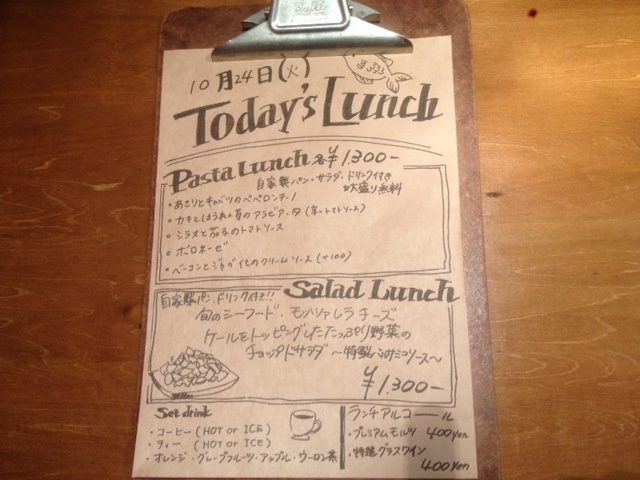 10月24日(火)
Today's Lunch
Pasta Lunch 各¥1.300-
自家製パン・サラダ・ドリンク付き
大盛り無料
・あさりとキャベツのペペロンチーノ
・カキとほうれん草のアラビアータ(辛いトマトソース)
・シラスと茄子のトマトソース
・ボロネーゼ
・ベーコンとジャガイモのクリームソース(+100)
自家製パン、ドリンク付き!!
Salad Lunch
旬のシーフード・モッツァレラチーズ
ケールをトッピングしたたっぷり野菜の
チョップドサラダ ～特製バルサミコソース～
¥1.300-
Set drink
・コーヒー (HOT or ICE)
・ティー (HOT or ICE)
・オレンジ・グレープフルーツ・アップル・ウーロン茶
ランチアルコール
・プレミアムモルツ 400yen
・特選グラスワイン
400yen